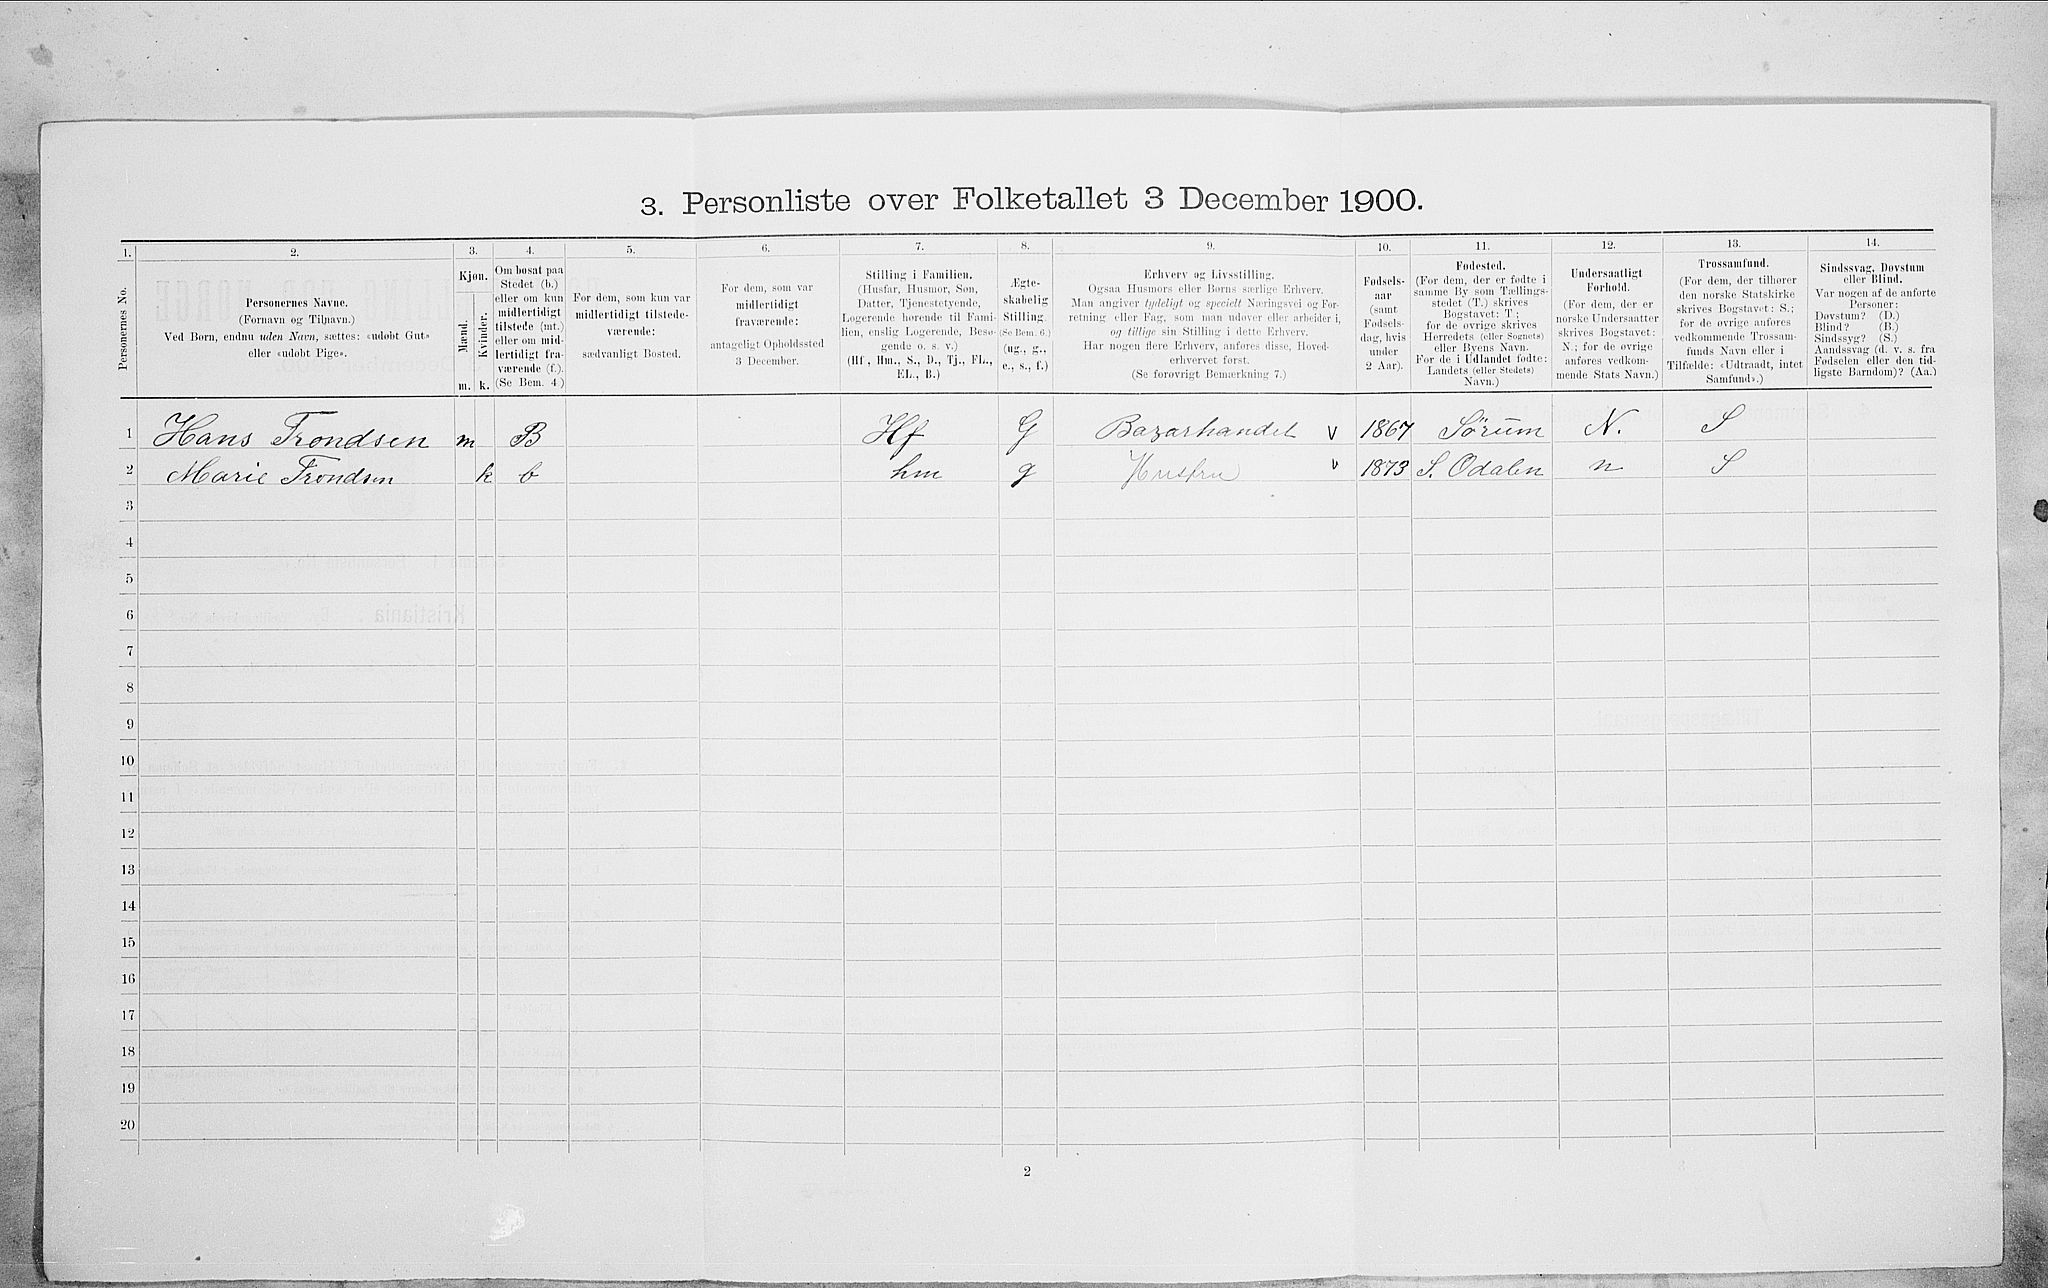 3. Personliste over Folketallet 3 December 1900.
1. 2. 3. 4. 5. 6. 7. 8. 9. 10. 11. 12. 13. 14.
Personernes No.
Personernes Navne.
(Fornavn og Tilnavn.)
Ved Børn, endnu uden Navn, sættes: «udøbt Gut»
eller «udøbt Pige».
Kjøn.
Mænd.
Kvinder.
m. k.
Om bosat paa
Stedet (b.)
eller om kun
midlertidigt
tilstede (mt.)
eller om mid-
lertidigt fra-
værende (f.).
(Se Bem. 4.)
For dem, som kun var
midlertidigt tilstede-
værende:
sædvanligt Bosted.
For dem, som var
midlertidigt
fraværende:
antageligt Opholdssted
3 December.
Stilling i Familien.
(Husfar, Husmor, Søn,
Datter, Tjenestetyende,
Logerende hørende til Fami-
lien, enslig Logerende, Besø-
gende o. s. v.)
(Hf, Hm., S., D., Tj., FL.,
EL., B.)
Ægte-
skabelig
Stilling.
(Se Bem. 6.)
(ug., g.,
e., s., f.)
Erhverv og Livsstilling.
Ogsaa Husmors eller Børns særlige Erhverv.
Man angiver tydeligt og specielt Næringsvei og For-
retning eller Fag, som man udøver eller arbeider i,
og tillige sin Stilling i dette Erhverv.
Har nogen flere Erhverv, anføres disse, Hoved-
erhvervet først.
(Se forøvrigt Bemærkning 7.)
Fødsels-
aar
(samt
Fødsels-
dag, hvis
under
2 Aar).
Fødested.
(For dem, der er fødte i
samme By som Tællings-
stedet (T.) skrives
Bogstavet: T;
for de øvrige skrives
Herredets (eller Sognets)
eller Byens Navn.
For de i Udlandet fødte:
Landets (eller Stedets)
Navn.)
Undersaatligt
Forhold.
(For dem, der er
norske Undersaatter
skrives Bogstavet:
N.; for de øvrige
anføres vedkom-
mende Stats Navn.)
Trossamfund.
(For dem, der tilhører
den norske Statskirke
skrives Bogstavet: S.;
for de øvrige anføres
vedkommende Trossam-
funds Navn eller i
Tilfælde: «Udtraadt, intet
Samfund».)
Sindssvag, Døvstum
eller Blind.
Var nogen af de anførte
Personer:
Døvstum? (D.)
Blind? (B.)
Sindssyg? (S.)
Aandssvag (d. v. s. fra
Fødselen eller den tid-
ligste Barndom)? (Aa.)
1 Hans Trondsen m B Hf G Bazarhandel v 1867 Sørum N. S
2 Marie Trondsen k b hm g Hustru v 1873 S. Odalen n S
3
4
5
6
7
8
9
10
11
12
13
14
15
16
17
18
19
20
2